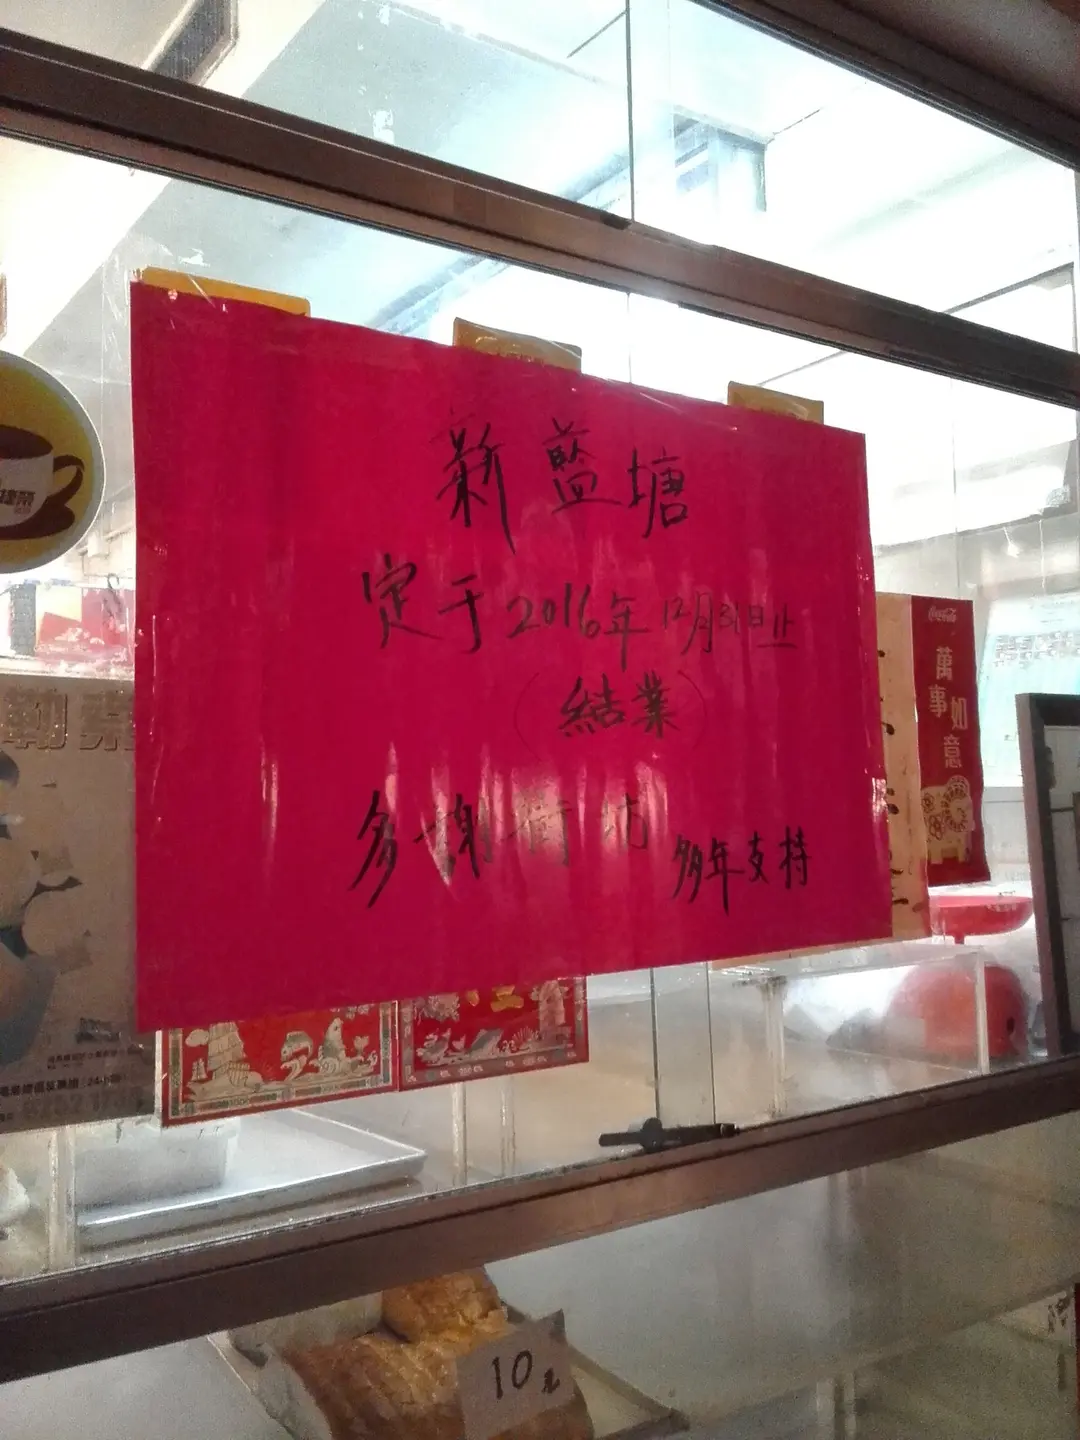 新藍塘
定于2016年12月31日止
(結業)
多謝街坊 多年支持
Coca-Cola
萬事如意
10元